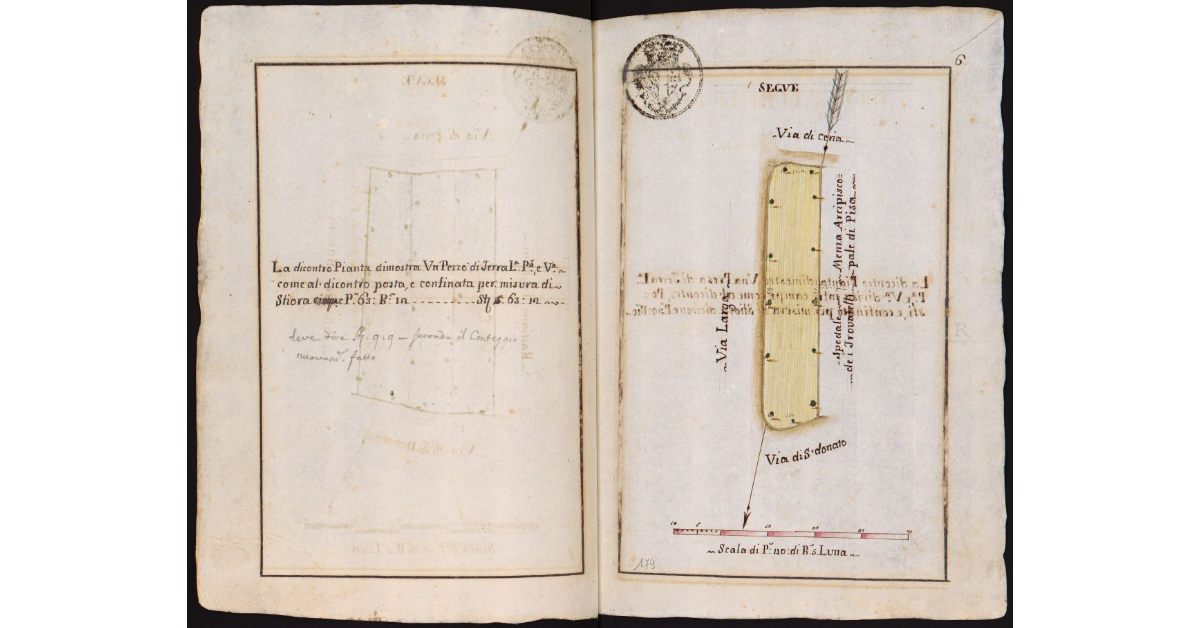 La dicontro Pianta dimostra Vn' Pezzo di Terra L.ª P.ª e V.ª
come al dicontro posta, e confinata per misura di
Stiora P.ª 63: B.ª 12 St. 6: 63: 12
deve dire 9. 9 — secondo il Conteggio
nuovam. fatto
6
SEGVE
Via di ceria
Via Larga
Spedale
de i Trovatelli
Menza Arcipisco=
pale di Pisa
Via di S: donato
10 5 10 20 30 40
Scala di P.ª 40: di B.ª 5 Luna
179